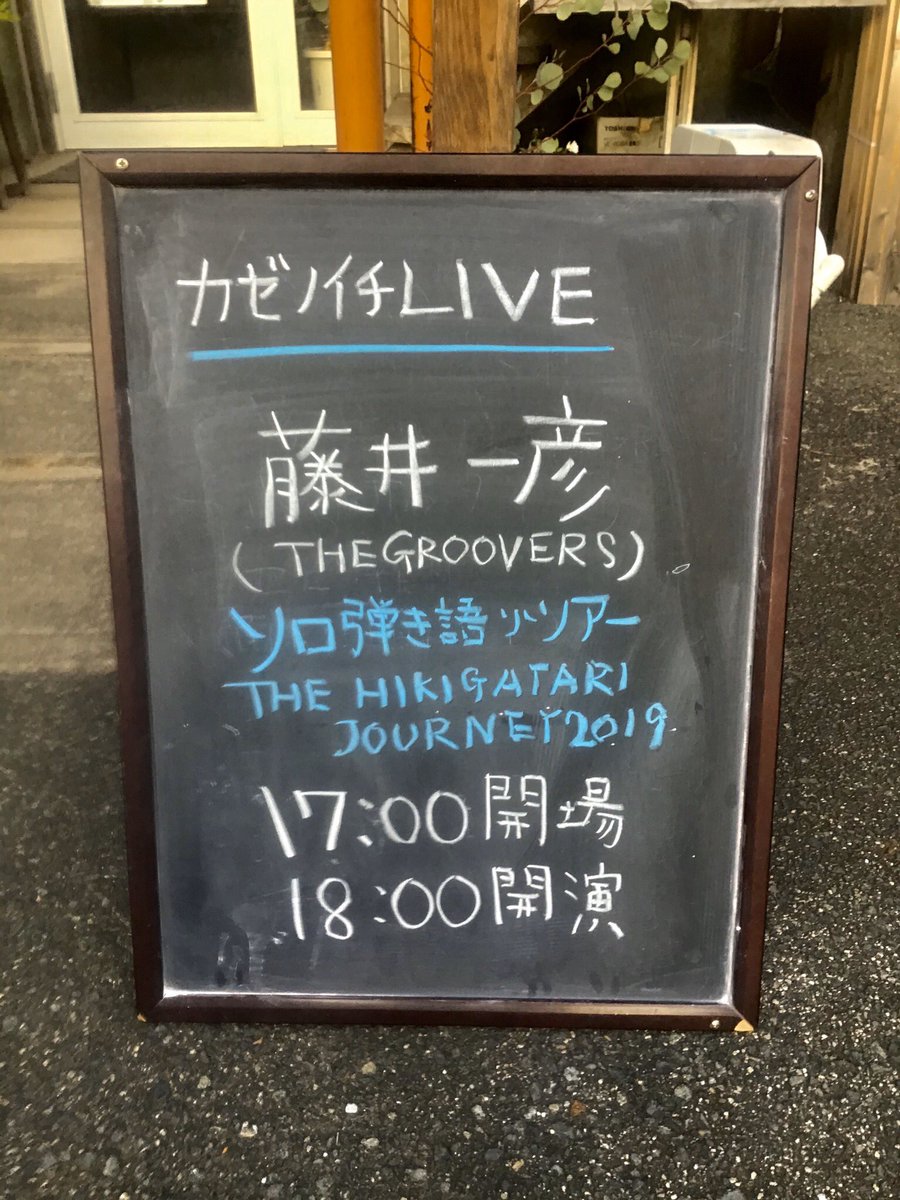 カゼノイチLIVE
藤井一彦
(THE GROOVERS)
ソロ弾き語りツアー
THE HIKIGATARI
JOURNEY2019
17:00開場
18:00開演
TOSHIBA